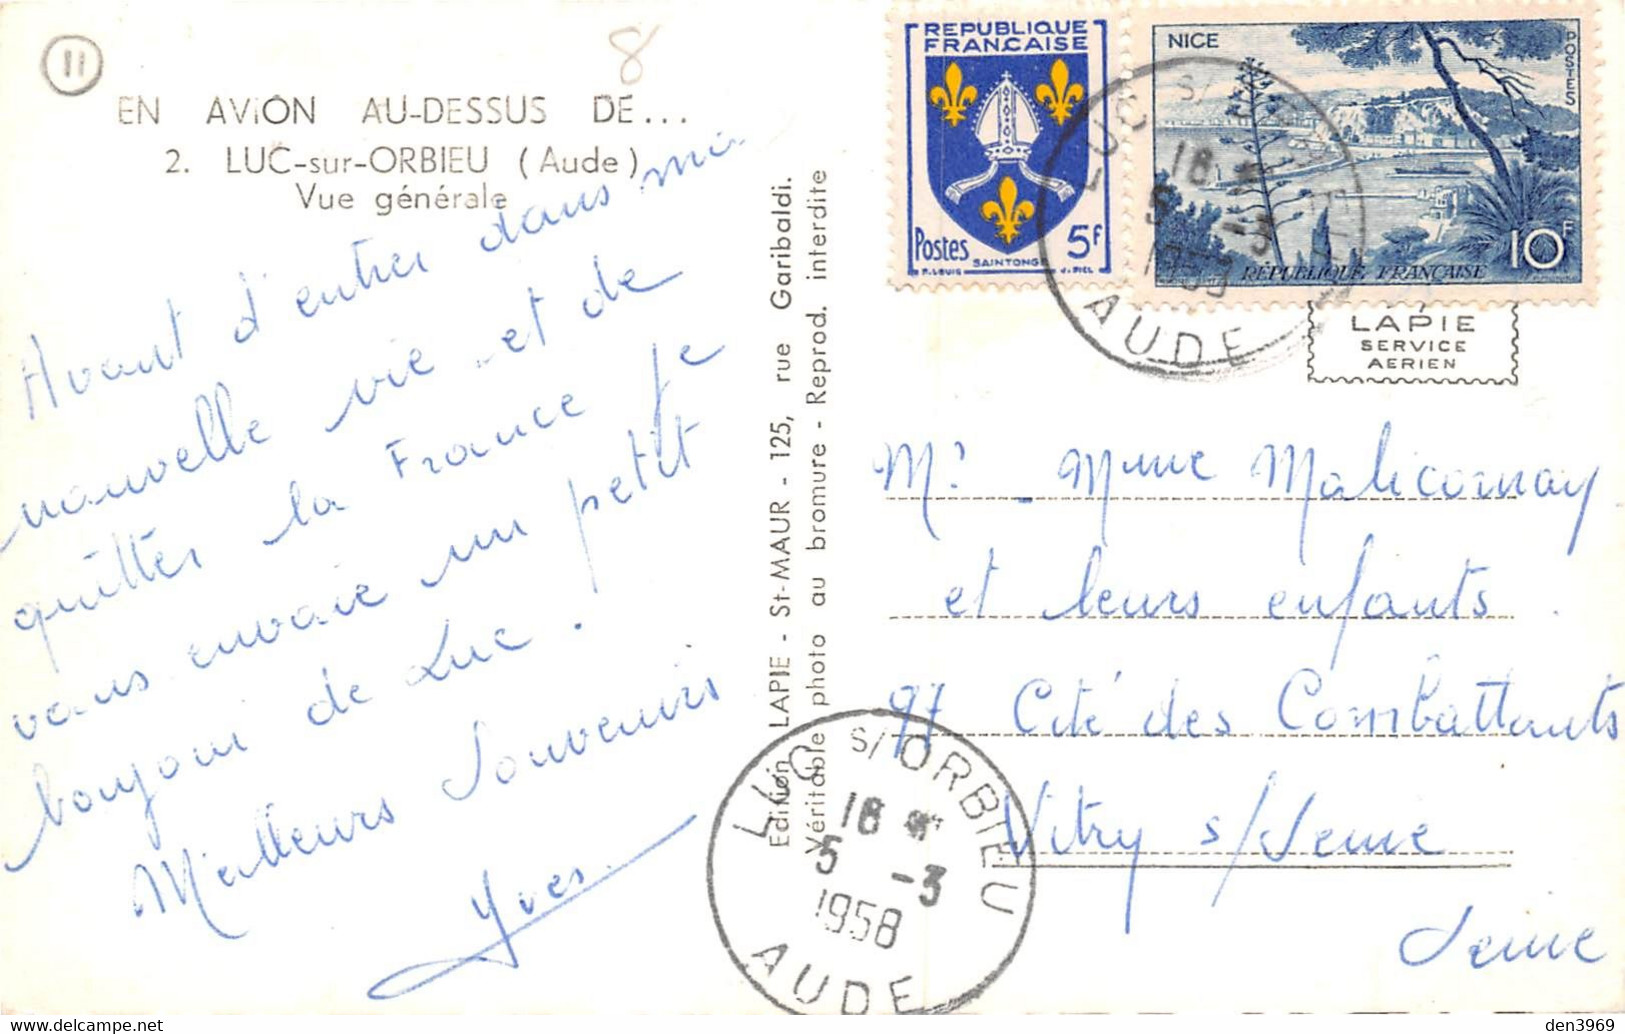 11
8
EN AVION AU-DESSUS DE...
2. LUC-sur-ORBIEU (Aude)
Vue générale
Avant d'entrer dans ma
nouvelle vie et de
quitter la France je
vous envoie un petit
bonjour de Luc.
Meilleurs Souvenirs
Yves
Edition LAPIE - St-MAUR - 125, rue Garibaldi.
Véritable photo au bromure - Reprod. interdite
REPUBLIQUE
FRANÇAISE
Postes 5F
SAINTONGE
P. LOUIS J. PIEL
NICE
POSTES
10F
RÉPUBLIQUE FRANÇAISE
LUC S/
18
5 -3
AUDE
LAPIE
SERVICE
AERIEN
Mr - Mme Malicornay
et leurs enfants
97 Cité des Combattants
Vitry s/Seine
Seine
LUC S/ORBIEU
18
5 -3
1958
AUDE
den3969
delcampe.net